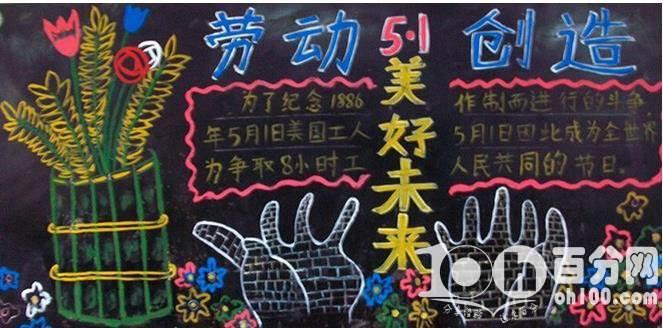 劳动
5·1
创造
美好未来
为了纪念1886
年5月1日美国工人
为争取8小时工
作制而进行的斗争
5月1日因此成为全世界
人民共同的节日。
100百分网
oh100.com